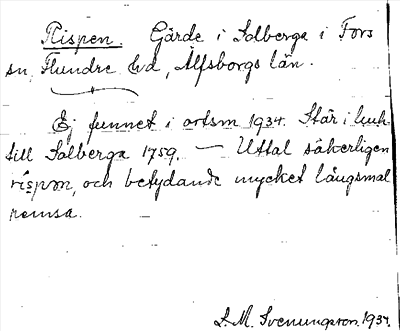 Rispen. Gärde i Solberga i Fors
sn, Flundre hd, Älfsborgs län.
Ej funnet i ortsn 1934. Står i luck
till Solberga 1759. — Uttal säkerligen
rispən, och betydande mycket långsmal
remsa.
S. M. Svenungsson. 1934.